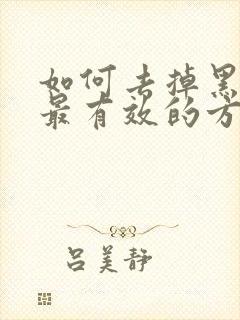 如何去掉黑
最有效的方
吕美静